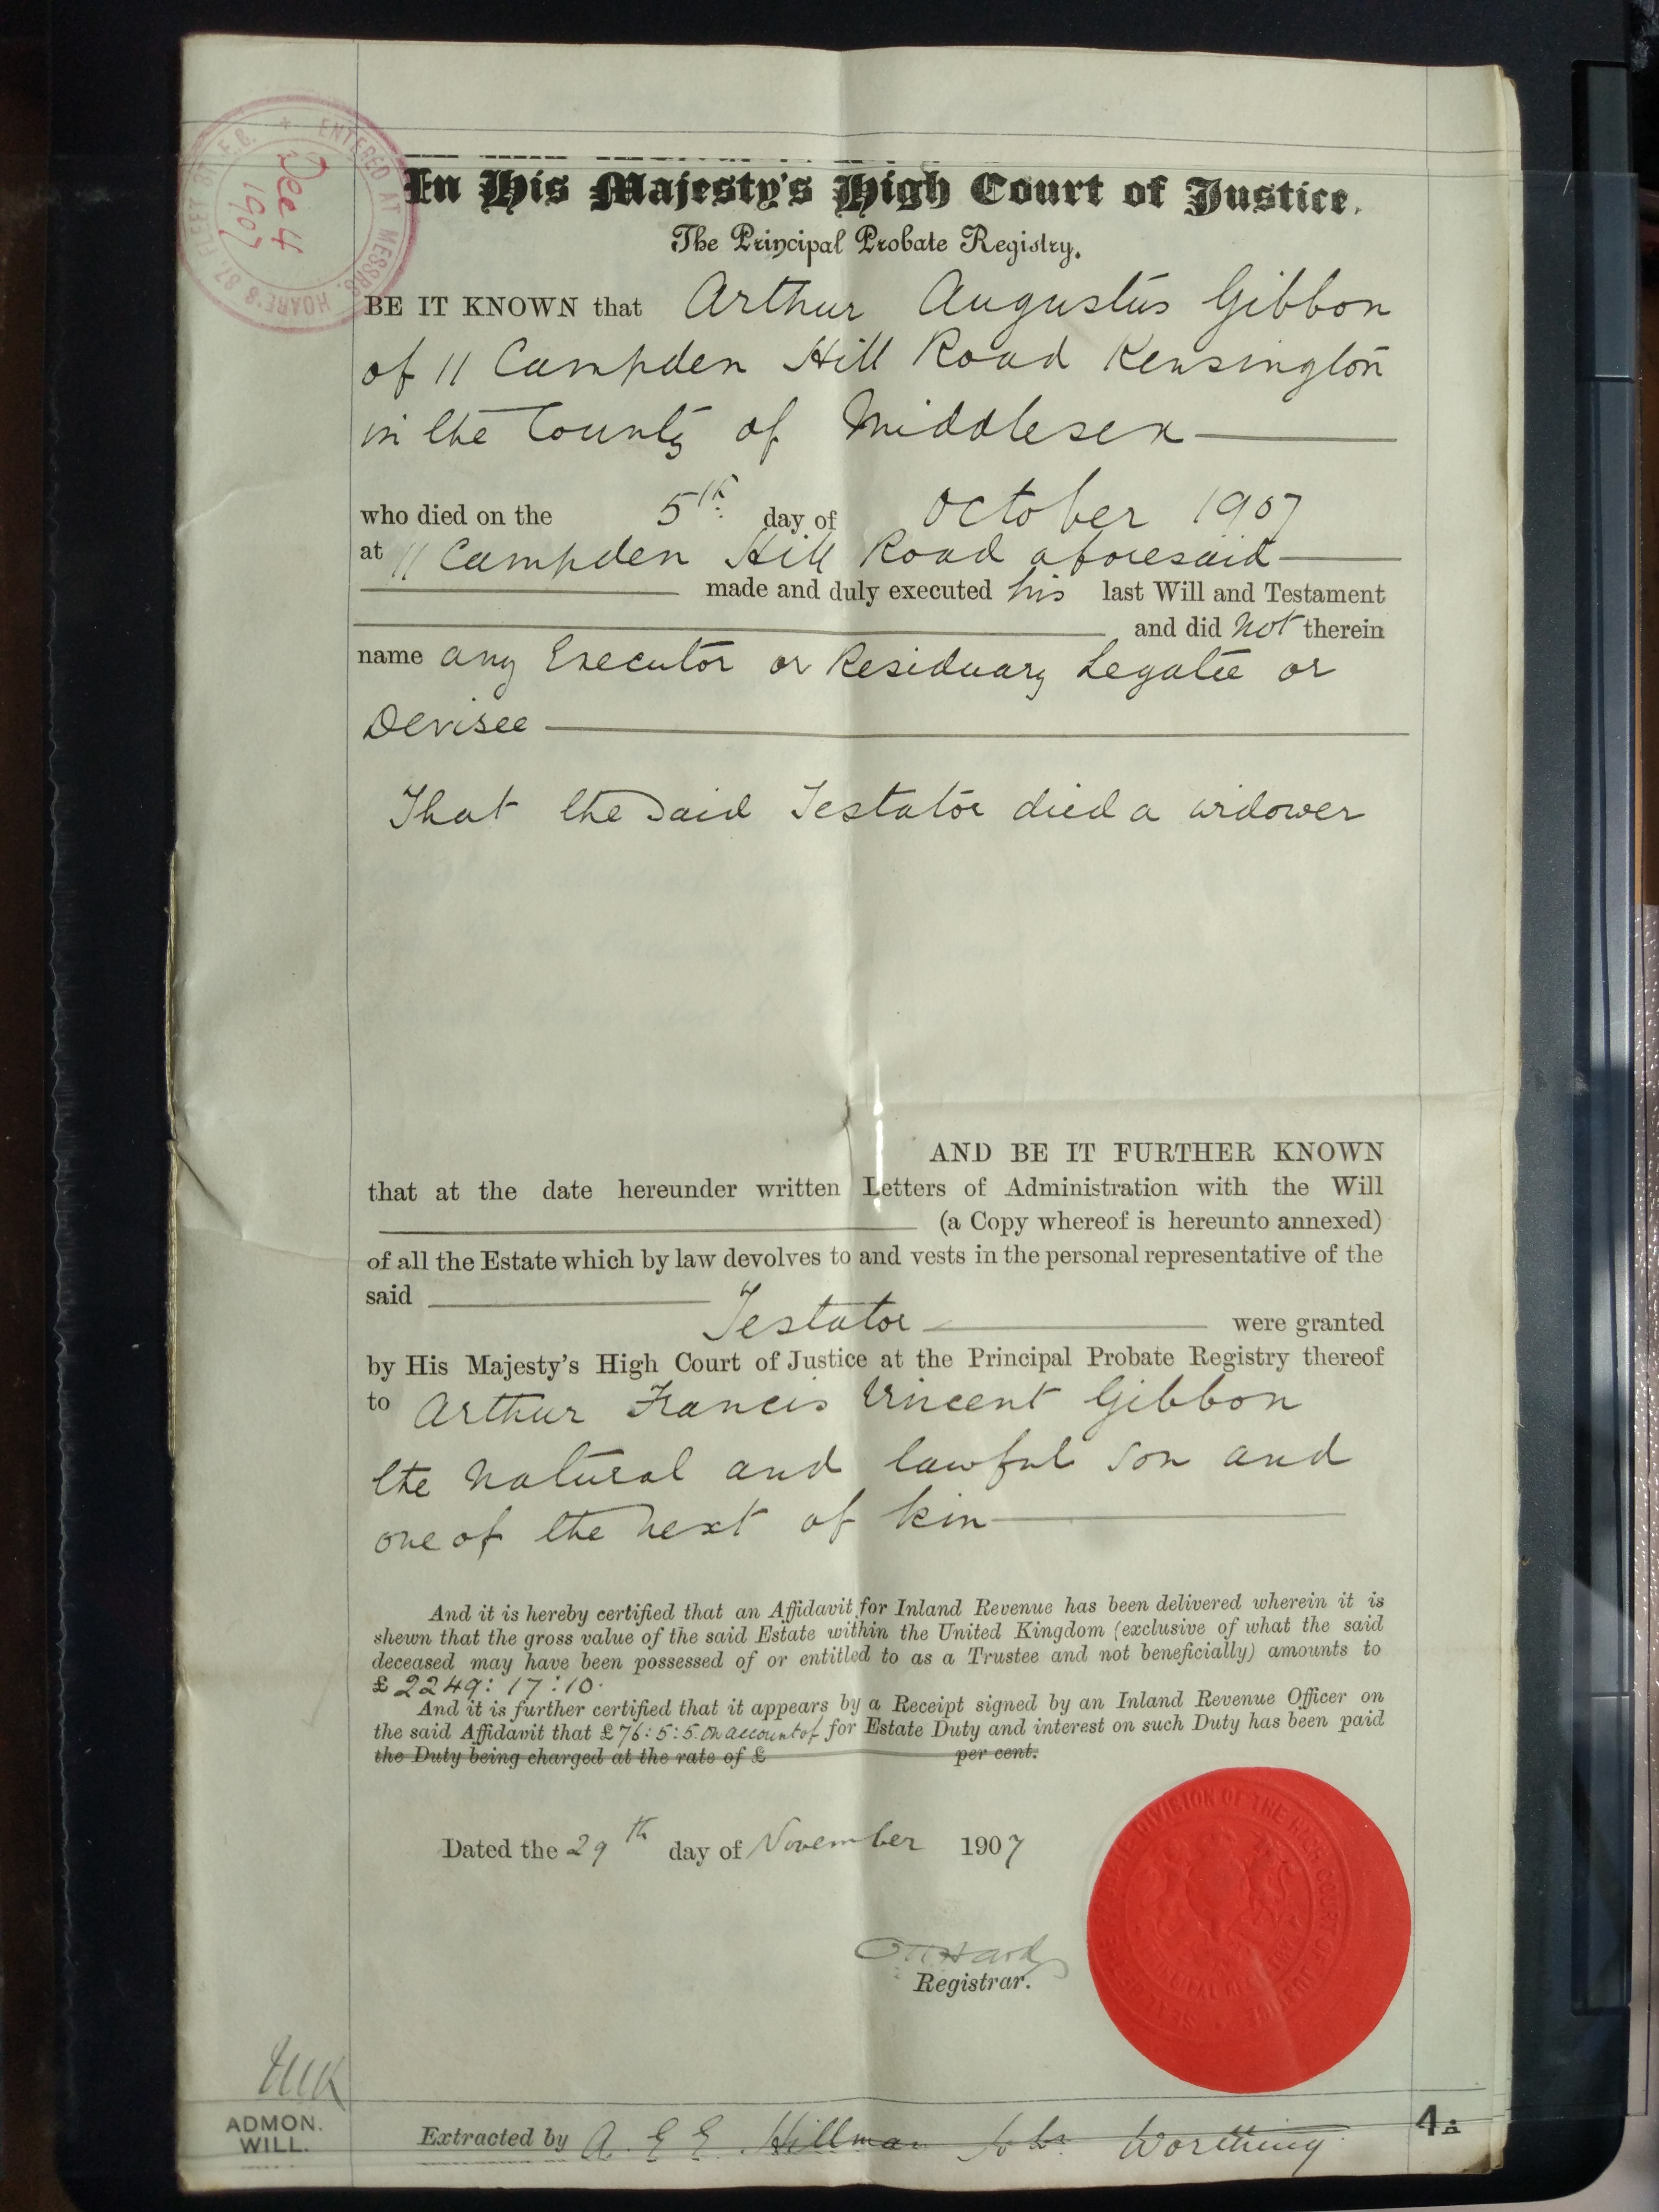 ENTERED AT MESSRS. HOARE'S 37, FLEET ST. E.C.
Dec 4
1907
In His Majesty's High Court of Justice.
The Principal Probate Registry.
BE IT KNOWN that Arthur Augustus Gibbon
of 11 Campden Hill Road Kensington
in the County of Middlesex
who died on the 5th day of October 1907
at 11 Campden Hill Road aforesaid
made and duly executed his last Will and Testament
and did not therein
name any Executor or Residuary Legatee or
Devisee
That the said Testator died a widower
AND BE IT FURTHER KNOWN
that at the date hereunder written Letters of Administration with the Will
(a Copy whereof is hereunto annexed)
of all the Estate which by law devolves to and vests in the personal representative of the
said
Testator were granted
by His Majesty's High Court of Justice at the Principal Probate Registry thereof
to Arthur Francis Vincent Gibbon
the natural and lawful son and
one of the next of kin
And it is hereby certified that an Affidavit for Inland Revenue has been delivered wherein it is
shewn that the gross value of the said Estate within the United Kingdom (exclusive of what the said
deceased may have been possessed of or entitled to as a Trustee and not beneficially) amounts to
£2249:17:10.
And it is further certified that it appears by a Receipt signed by an Inland Revenue Officer on
the said Affidavit that £76:5:5. on account of for Estate Duty and interest on such Duty has been paid
the Duty being charged at the rate of £ per cent.
Dated the 29th day of November 1907
Registrar.
ADMON.
WILL.
Extracted by A. E E. Hillman Solr Worthing